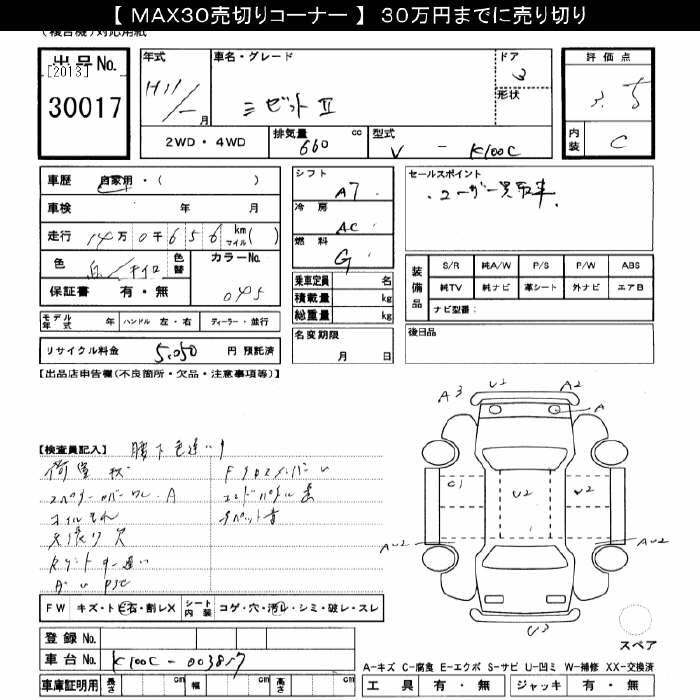 【 MAX30売切りコーナー 】 30万円までに売り切り
出品No.
[2013]
30017
年式
H11/ー月
車名・グレード
ミゼットⅡ
ドア
3
形状
評価点
3.5
内装
C
2WD・4WD
排気量
660
cc
型式
V - K100C
車歴
自家用・(　　　)
車検
年　月
走行
14万0千656
km
マイル
(　)
色
色替
カラーNo.
045
保証書
有・無
モデル年式
年
ハンドル
左・右
ディーラー・並行
リサイクル料金
5,050
円 預託済
シフト
A7
冷房
AC
燃料
G
乗車定員
名
積載量
kg
総重量
kg
名変期限
月　日
セールスポイント
・ユーザー買取車.
装備品
S/R
純A/W
P/S
P/W
ABS
純TV
純ナビ
革シート
外ナビ
エアB
ナビ型番:
後日品
【出品店申告欄(不良箇所・欠品・注意事項等)】
【検査員記入】
腰下色違い
荷室
オイルもれ
天張り欠
FW
キズ・ト ビ石・割レX
シート内装
コゲ・穴・汚レ・シミ・破レ・スレ
登録No.
車台No.
K100C-003857
車庫証明用
長さ
cm
幅
cm
高さ
cm
A3
U1
A2
A
C1
U2
U2
AU2
AU2
U3
スペア
A-キズ C-腐食 E-エクボ S-サビ U-凹ミ W-補修 XX-交換済
工具
有・無
ジャッキ
有・無